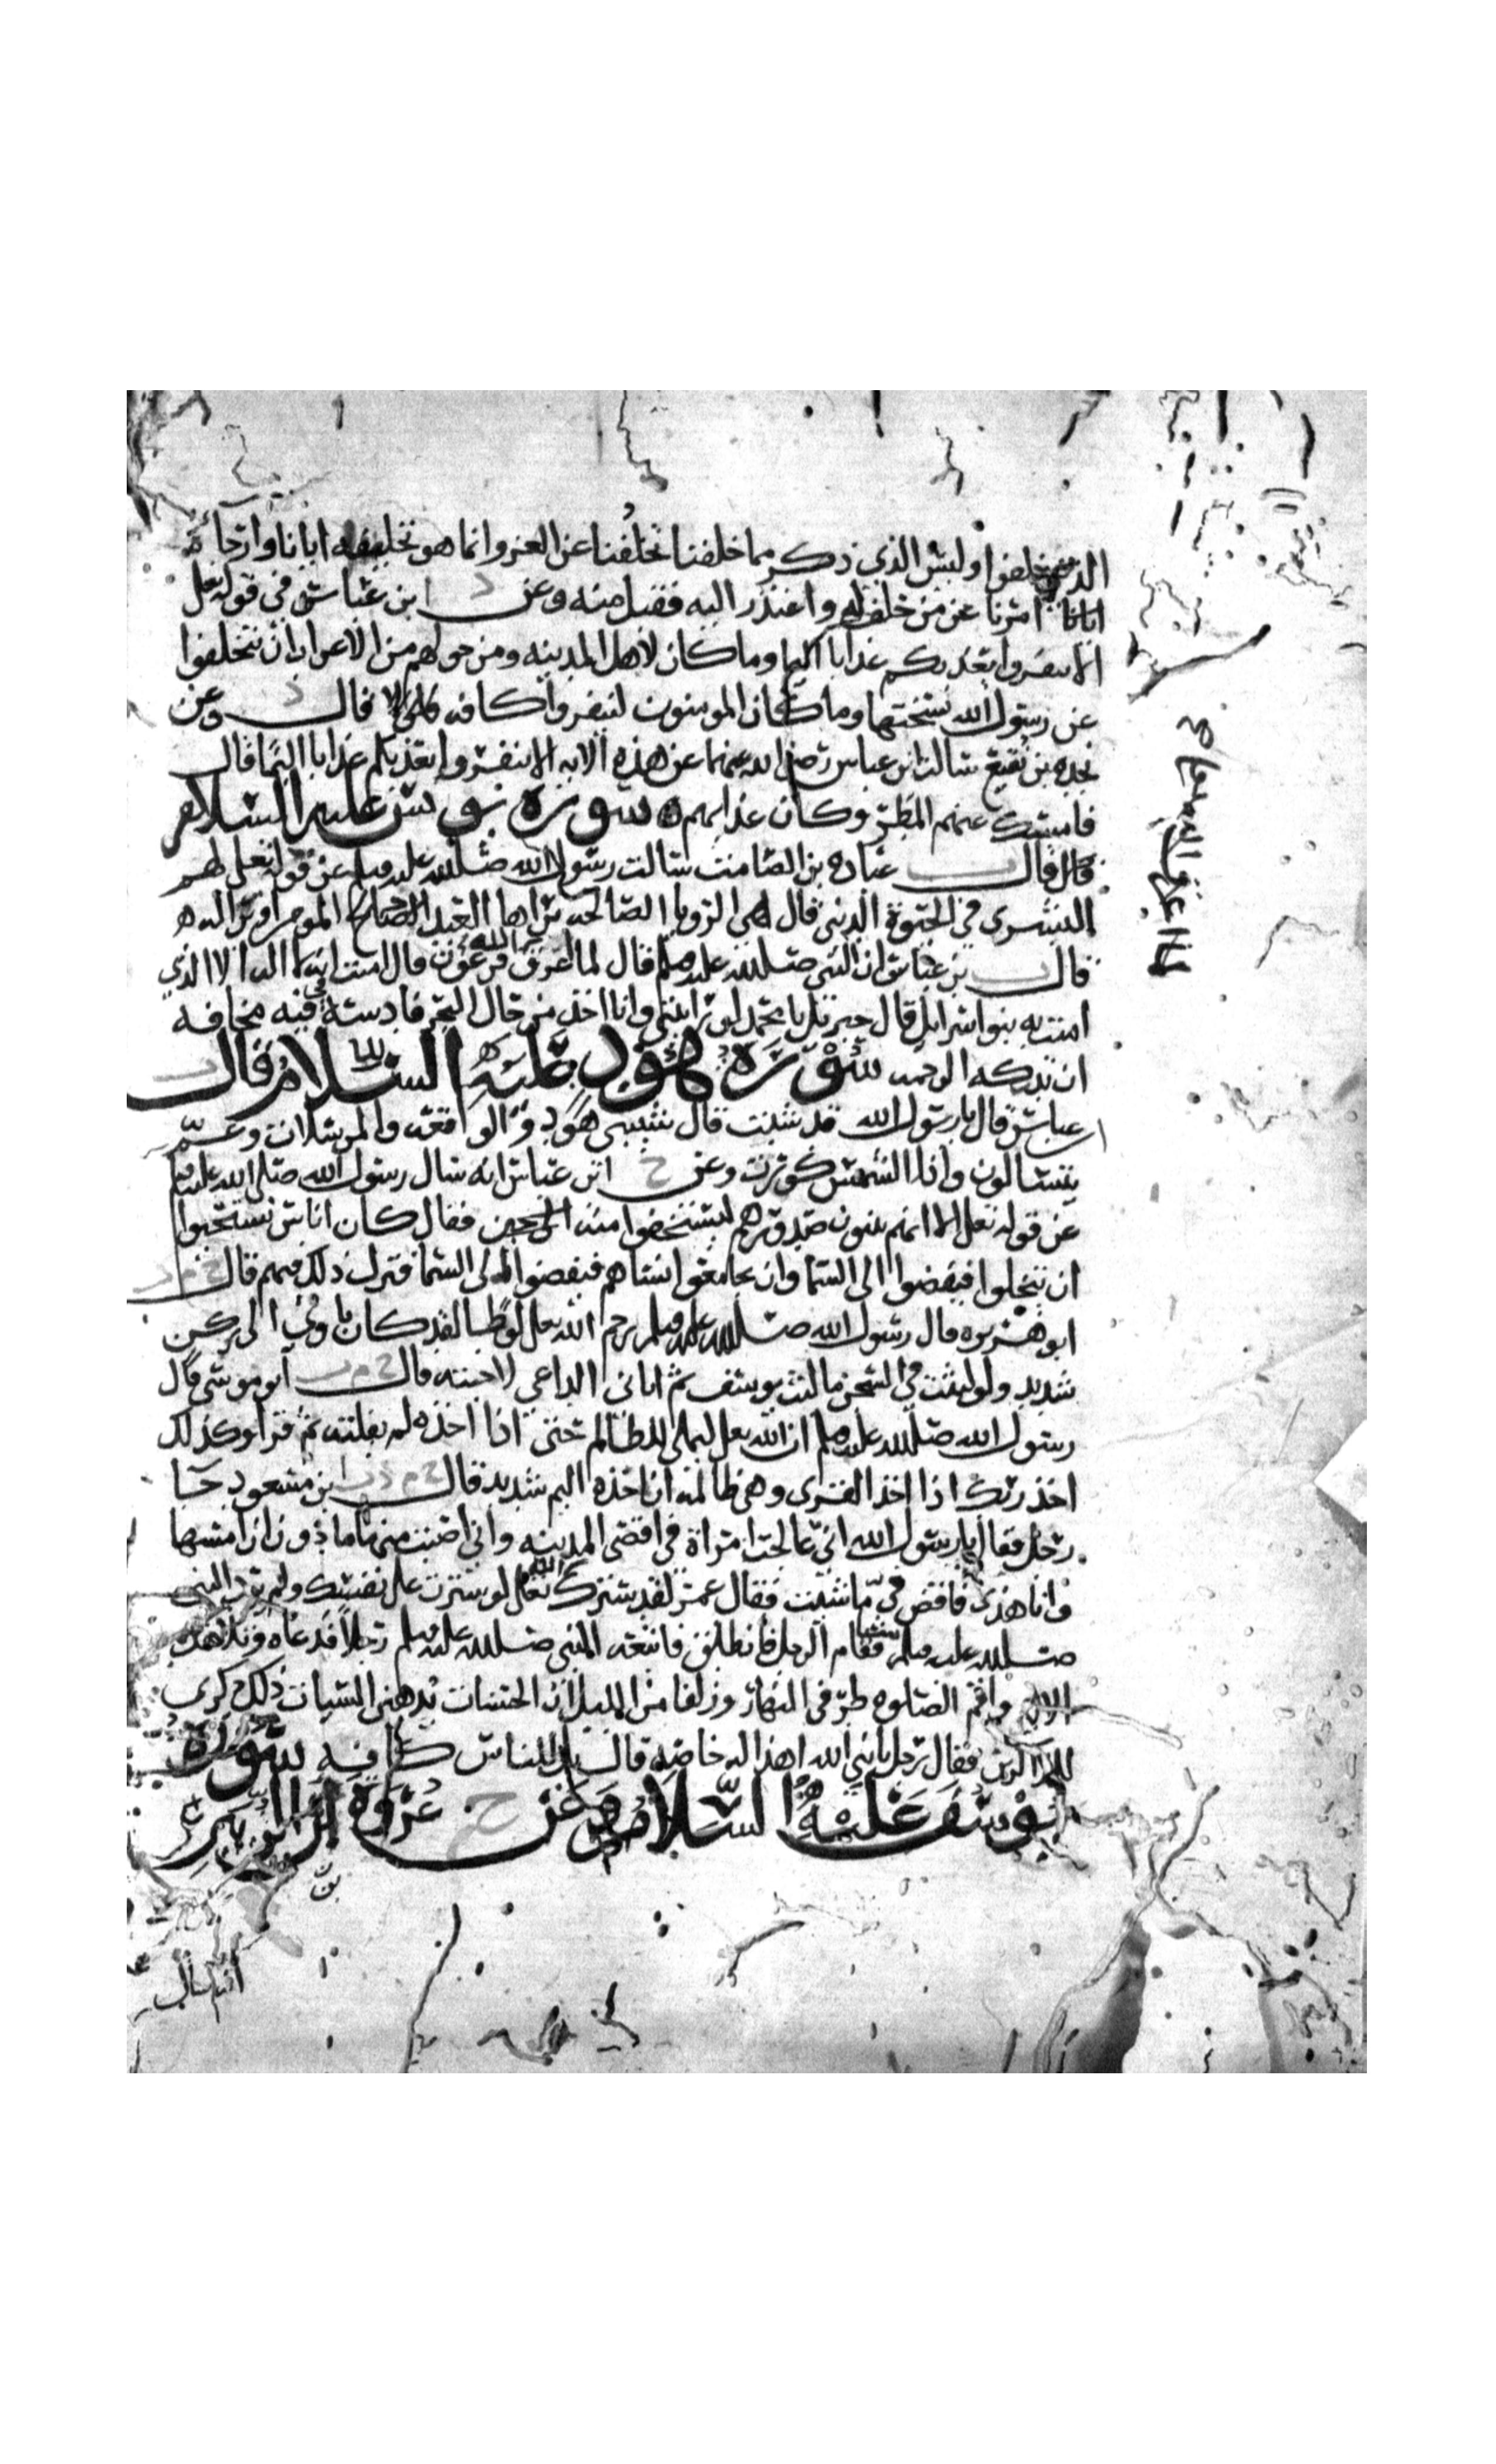 الذين خلفوا وليس الذي ذكر مما خلفنا تخلفنا عن الغزو وانما هو تخليفه ايانا وارجاه
ايانا امرنا عن من حلف له واعتذر اليه فقبل منه وعن د ابن عباس في قوله تعلى
الا تنفروا يعذبكم عذابا اليما وما كان لاهل المدينه ومن حولهم من الاعراب ان يتخلفوا
عن رسول الله نسختها وما كان المومنون لينفروا كافه قال د وعن
نجده بن نفيع سالت ابن عباس رضي الله عنهما عن هذه الايه الا تنفروا يعذبكم عذابا اليما قال
فامسك عنهم المطر وكان عذابهم سورة يونس عليه السلام
قال عباده بن الصامت سالت رسول الله صلى الله عليه وسلم عن قوله تعلى لهم
البشرى في الحيوة الدنيا قال هي الرويا الصالحه يراها العبد الصالح المومن او ترا له
قال بن عباس ان النبي صلى الله عليه وسلم قال لما اغرق الله فرعون قال امنت انه لا اله الا الذي
امنت به بنوا اسرايل قال جبريل يا محمد لو رايتني وانا اخذ من حال البحر فادسه في فيه مخافه
ان تدركه الرحمه سورة هود عليه السلام قال
ابن عباس قال يا رسول الله قد شبت قال شيبتني هود والواقعه والمرسلات وعم
يتسالون واذا الشمس كورت وعن خ ابن عباس انه سال رسول الله صلى الله عليه وسلم
عن قوله تعلى الا انهم يثنون صدورهم ليستخفوا منه فقال كان اناس يستحيوا
ان يتخلوا فيفضوا الى السما وان يجامعوا نساهم فيفضوا الى السما فنزل ذلك فيهم قال خ م ت
ابو هريره قال رسول الله صلى الله عليه وسلم يرحم الله تعلى لوطا لقد كان ياوي الى ركن
شديد ولو لبثت في السجن ما لبث يوسف ثم اتاني الداعي لاجبته قال خ م ت ابو موسى قال
رسول الله صلى الله عليه وسلم ان الله تعلى ليملي للظالم حتى اذا اخذه لم يفلته ثم قرا وكذلك
اخذ ربك اذا اخذ القرى وهي ظالمه ان اخذه اليم شديد قال خ م د ت ابن مسعود جا
رجل فقال يا رسول الله اني عالجت امراة في اقصى المدينه واني اصبت منها ما دون ان امسها
وانا هذى فاقض في ما شيت فقال عمر لقد سترك الله تعلى لو سترت على نفسك ولم يرد النبي
صلى الله عليه وسلم شيا فقام الرجل فانطلق فاتبعه النبي صلى الله عليه وسلم رجلا فدعاه وتلا هذه
الايه واقم الصلوه طرفي النهار وزلفا من الليل ان الحسنات يذهبن السيات ذلك ذكرى
للذاكرين فقال رجل يا نبي الله اهذا له خاصه قال بل للناس كافه سورة
يوسف عليه السلام عن خ عروة بن الزبير
انه سال